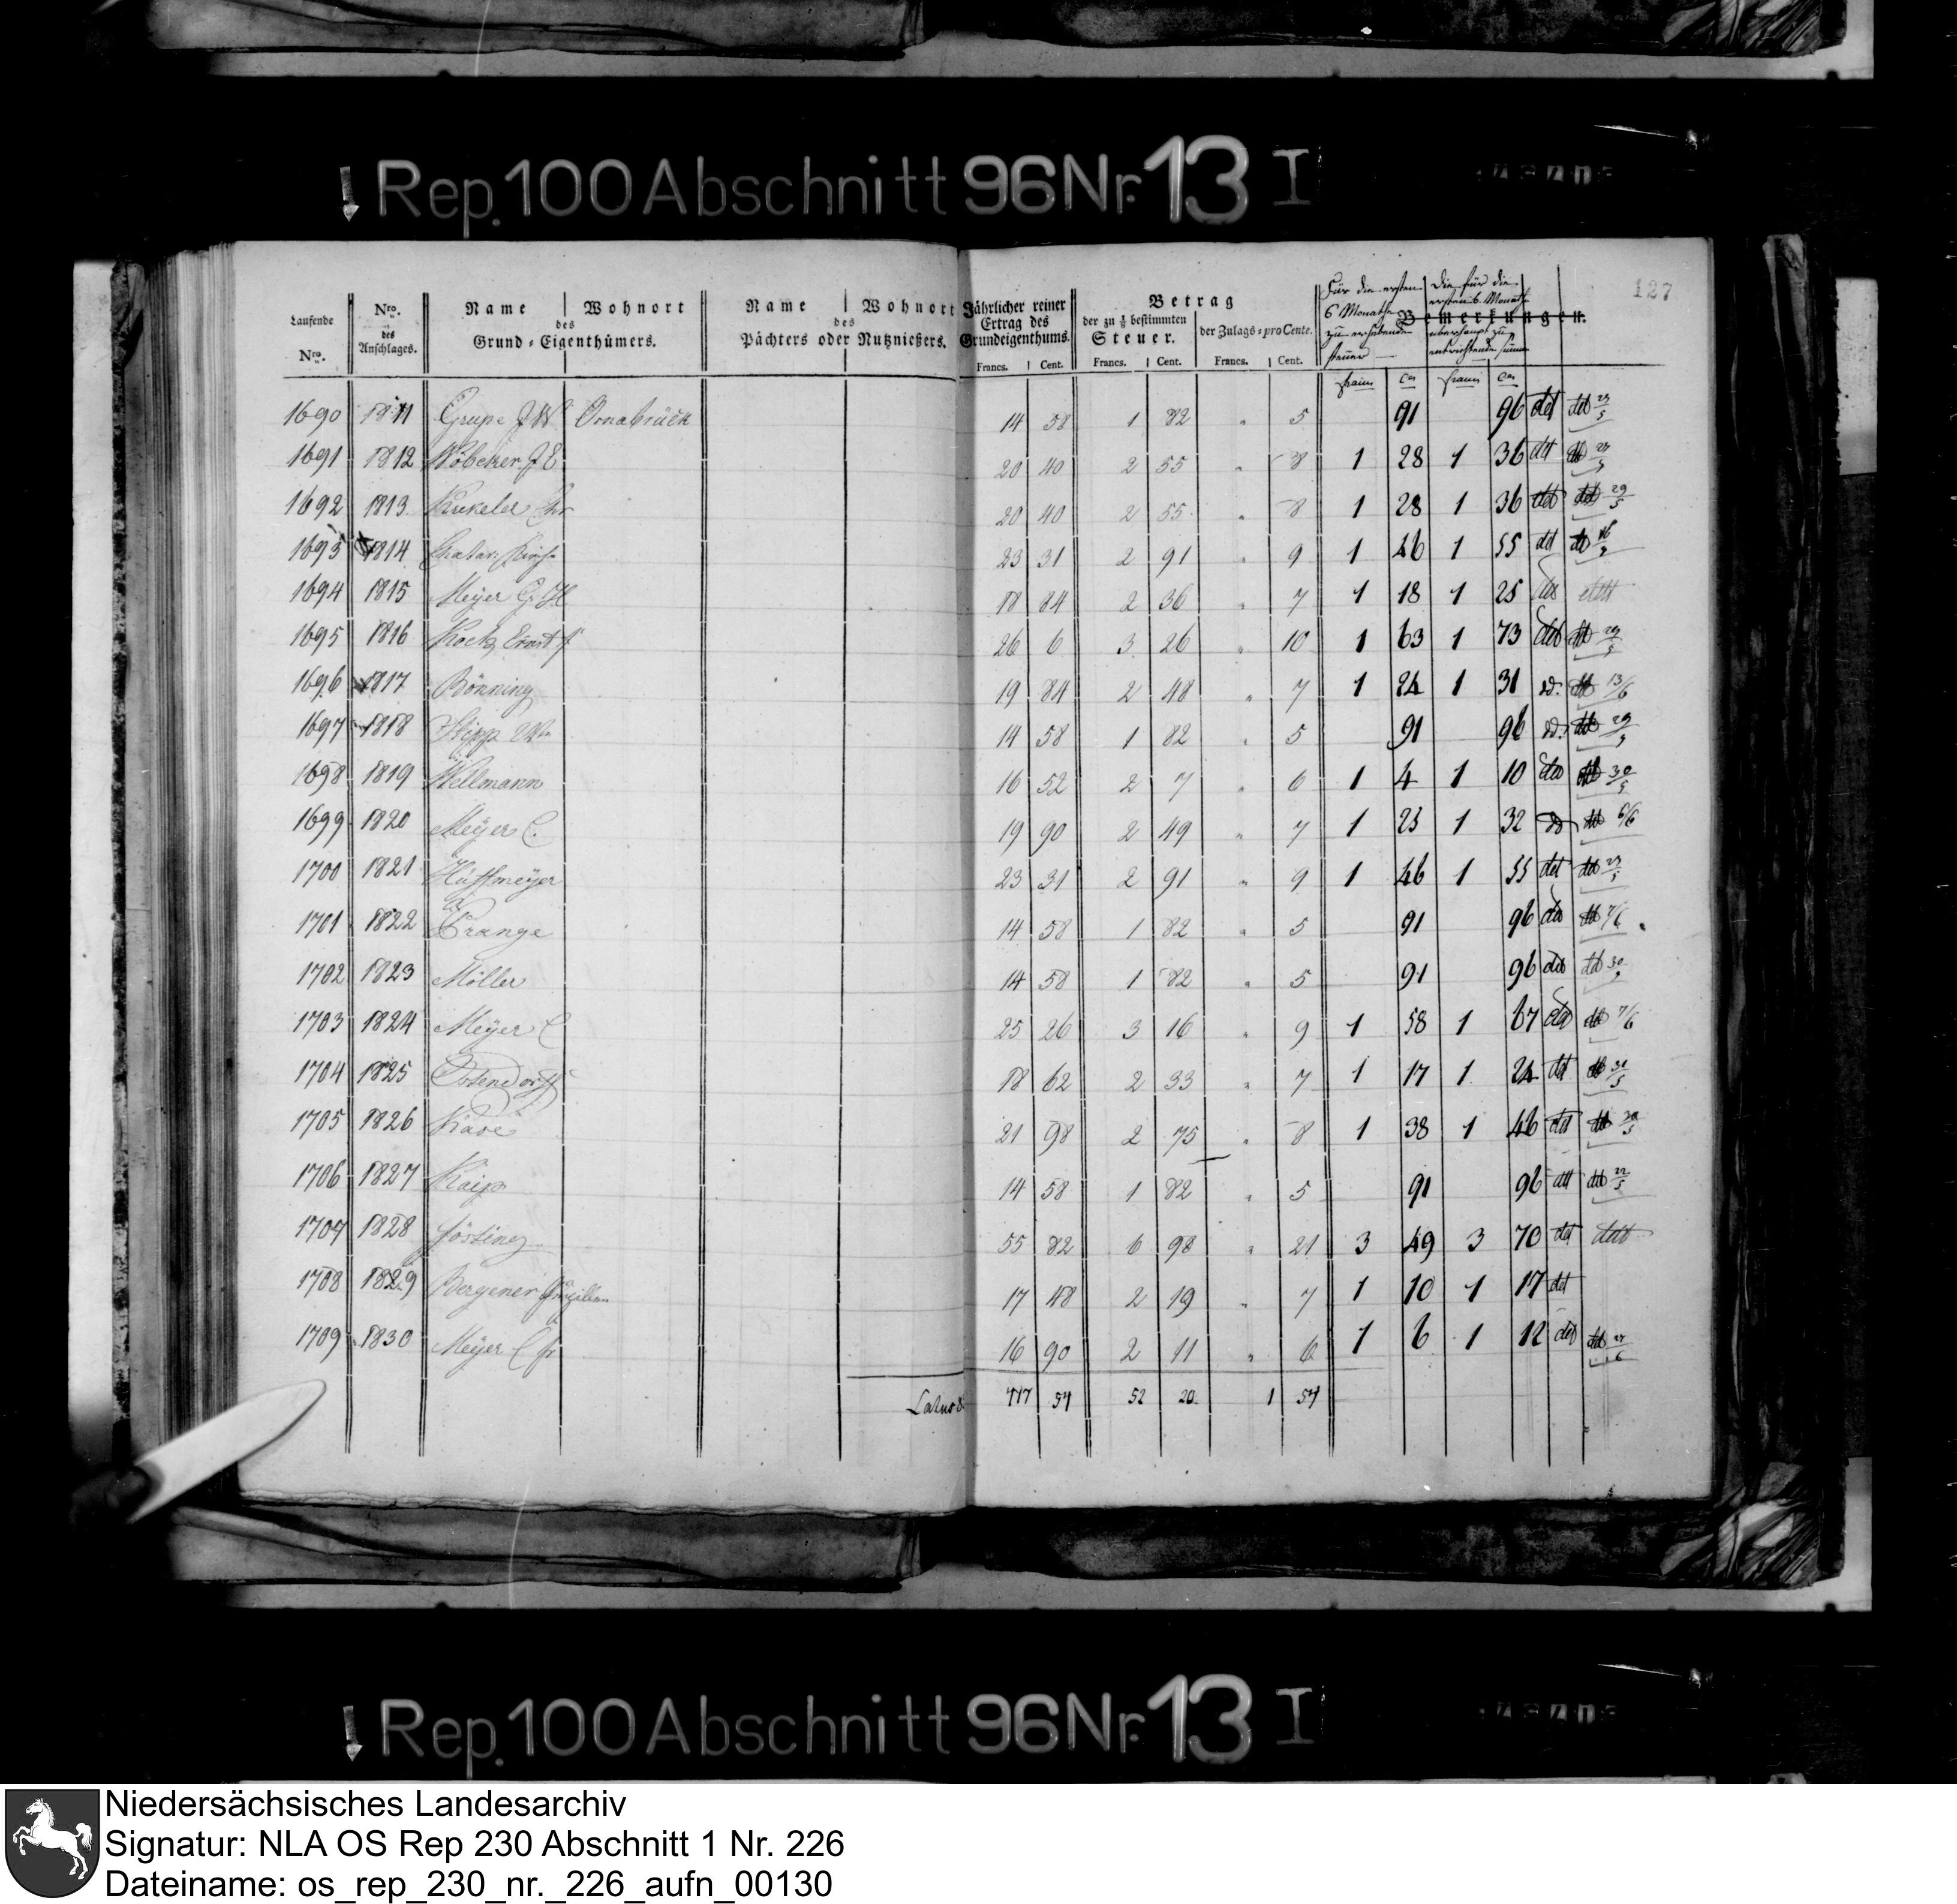 Rep. 100 Abschnitt 96 Nr. 13 I
127
Laufende Nro.
Nro. des Anschlages.
Name | Wohnort des Grund-Eigenthümers.
Name | Wohnort des Pächters oder Nutznießers.
Jährlicher reiner Ertrag des Grundeigenthums. Francs. | Cent.
Betrag
der zu ⅛ bestimmten Steuer. Francs. | Cent.
der Zulags-pro Cente. Francs. | Cent.
Für die ersten 6 Monathe zu erhebende Steuer
Die für die ersten 6 Monath überhaupt zu entrichtende Summe
Bemerkungen.
francs Cen francs Cen
1690 1811 Grupe J W Osnabrück 14 58 1 82 " 5 91 96 det det 23/5
1691 1812 20 40 2 55 " 8 1 28 1 36 det 23/5
1692 1813 20 40 2 55 " 8 1 28 1 36 det det 29/5
1693 1814 23 31 2 91 " 9 1 46 1 55 det
1694 1815 Meyer G. H 18 84 2 36 " 7 1 18 1 25
1695 1816 Kock Ernst 26 6 3 26 " 10 1 63 1 73 det 29/5
1696 1817 Bönning 19 84 2 48 " 7 1 24 1 31 13/6
1697 1818 14 58 1 82 " 5 91 96 29/5
1698 1819 Wellmann 16 52 2 7 " 6 1 4 1 10 30/5
1699 1820 Meyer C. 19 90 2 49 " 7 1 25 1 32 6/6
1700 1821 Hüffmeyer 23 31 2 91 " 9 1 46 1 55 det det 23/5
1701 1822 Prange 14 58 1 82 " 5 91 96 7/6
1702 1823 Möller 14 58 1 82 " 5 91 96 det
1703 1824 Meyer C 25 26 3 16 " 9 1 58 1 67 7/6
1704 1825 Ostendorff 18 62 2 33 " 7 1 17 1 24 det 31/5
1705 1826 21 98 2 75 " 8 1 38 1 46 det
1706 1827 14 58 1 82 " 5 91 96 det det 22/5
1707 1828 Jösting 55 82 6 98 " 21 3 49 3 70 det
1708 1829 17 48 2 19 " 7 1 10 1 17 det
1709 1830 Meyer C 16 90 2 11 " 6 1 6 1 12 det
Latus 417 54 52 20 1 54
Rep. 100 Abschnitt 96 Nr. 13 I
Niedersächsisches Landesarchiv
Signatur: NLA OS Rep 230 Abschnitt 1 Nr. 226
Dateiname: os_rep_230_nr._226_aufn_00130